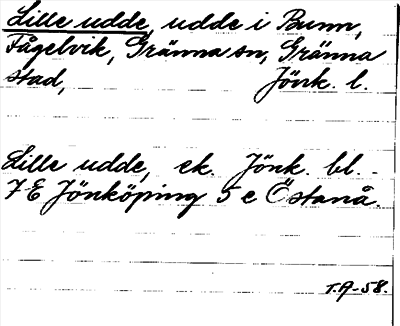 Lille udde, udde i Bunn,
Fågelvik, Gränna sn, Gränna
stad, Jönk. l.
Lille udde, ek. Jönk. bl.
7 E Jönköping 5 e Östanå.
T.A-58.